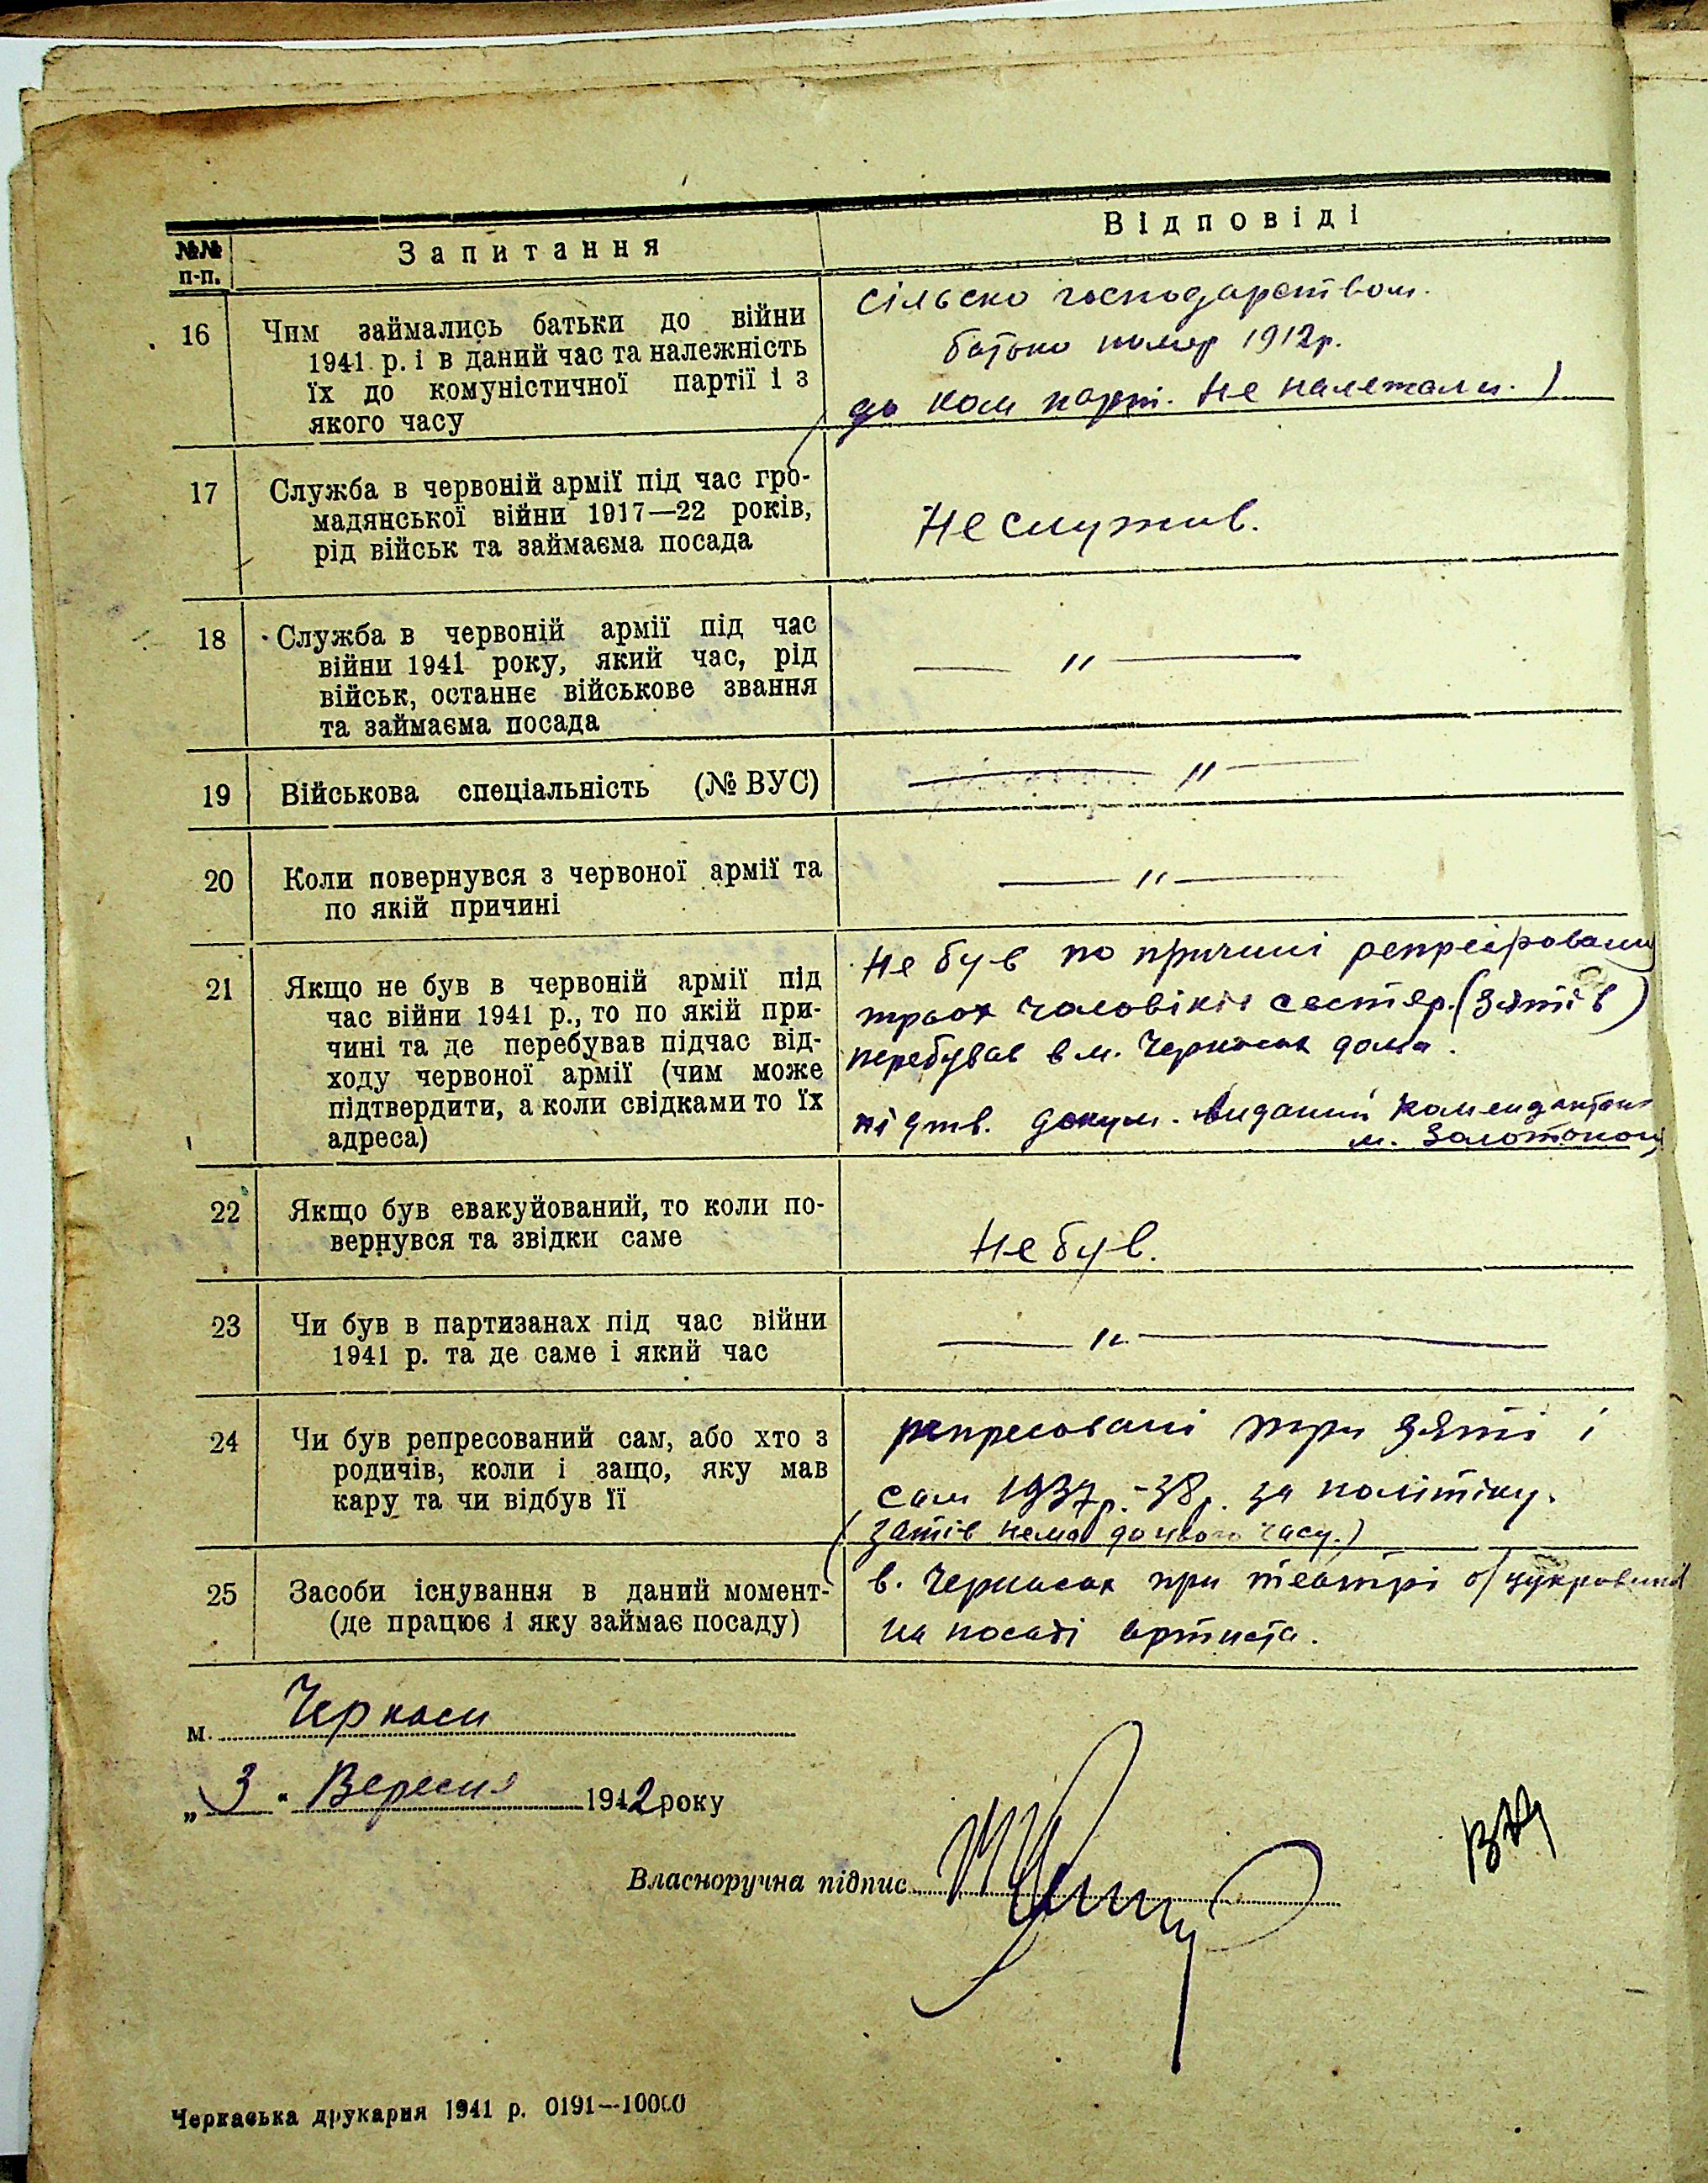 №№ п-п.
Запитання
Відповіді
16
Чим займались батьки до війни
1941 р. і в даний час та належність
їх до комуністичної партії і з
якого часу
сільско господарством.
батько помер 1912р.
до ком парт. не належали.)
17
Служба в червоній армії під час гро-
мадянської війни 1917—22 років,
рід військ та займаєма посада
Не служив.
18
Служба в червоній армії під час
війни 1941 року, який час, рід
військ, останнє військове звання
та займаєма посада
— " —
19
Військова спеціальність (№ ВУС)
— " —
20
Коли повернувся з червоної армії та
по якій причині
— " —
21
Якщо не був в червоній армії під
час війни 1941 р., то по якій при-
чині та де перебував підчас від-
ходу червоної армії (чим може
підтвердити, а коли свідками то їх
адреса)
Не був по причині
трьох чоловіків сестер. (зятів)
перебував в м. Черкасах дома.
підтв. докум. виданий
м.
22
Якщо був евакуйований, то коли по-
вернувся та звідки саме
Не був.
23
Чи був в партизанах під час війни
1941 р. та де саме і який час
— " —
24
Чи був репресований сам, або хто з
родичів, коли і защо, яку мав
кару та чи відбув її
репресовані три зяті і
сам 1937р.-38р. за політіку.
(зятів нема до цього часу.)
25
Засоби існування в даний момент-
(де працює і яку займає посаду)
в. Черкасах при театрі
на посаді артиста.
м. Черкаси
„ 3 " Вересня 1942 року
Власноручна підпис
Черкаська друкарня 1941 р. 0191—10000